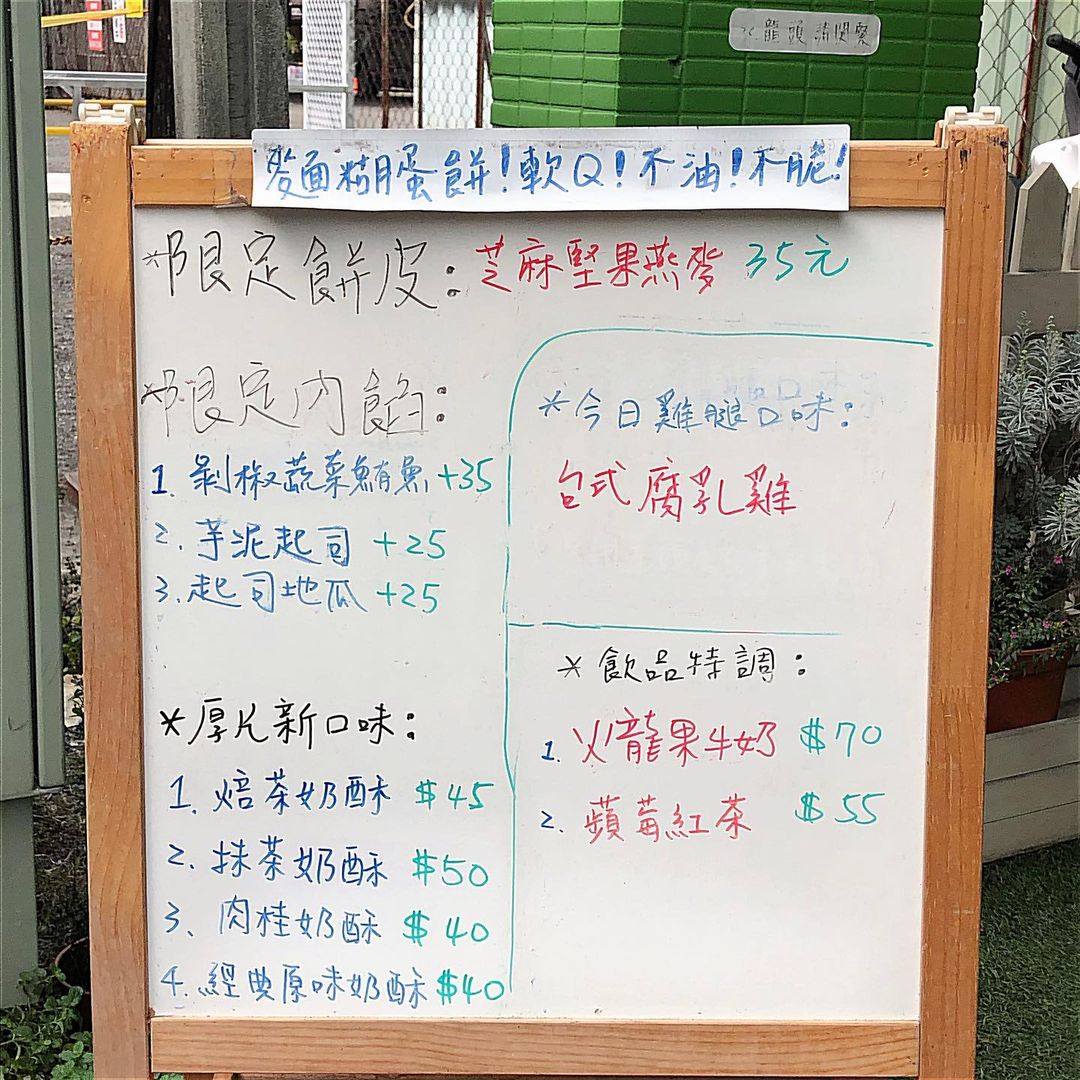 水龍頭請關緊
麥面糊蛋餅！軟Q！不油！不脆！
*限定餅皮：芝麻堅果燕麥 35元
*限定內餡：
1. 剝椒蔬菜鮪魚+35
2. 芋泥起司 +25
3. 起司地瓜 +25
*厚片新口味：
1. 焙茶奶酥 $45
2. 抹茶奶酥 $50
3、肉桂奶酥 $40
4. 經典原味奶酥 $40
*今日雞腿口味：
台式腐乳雞
*飲品特調：
1. 火龍果牛奶 $70
2. 蘋莓紅茶 $55